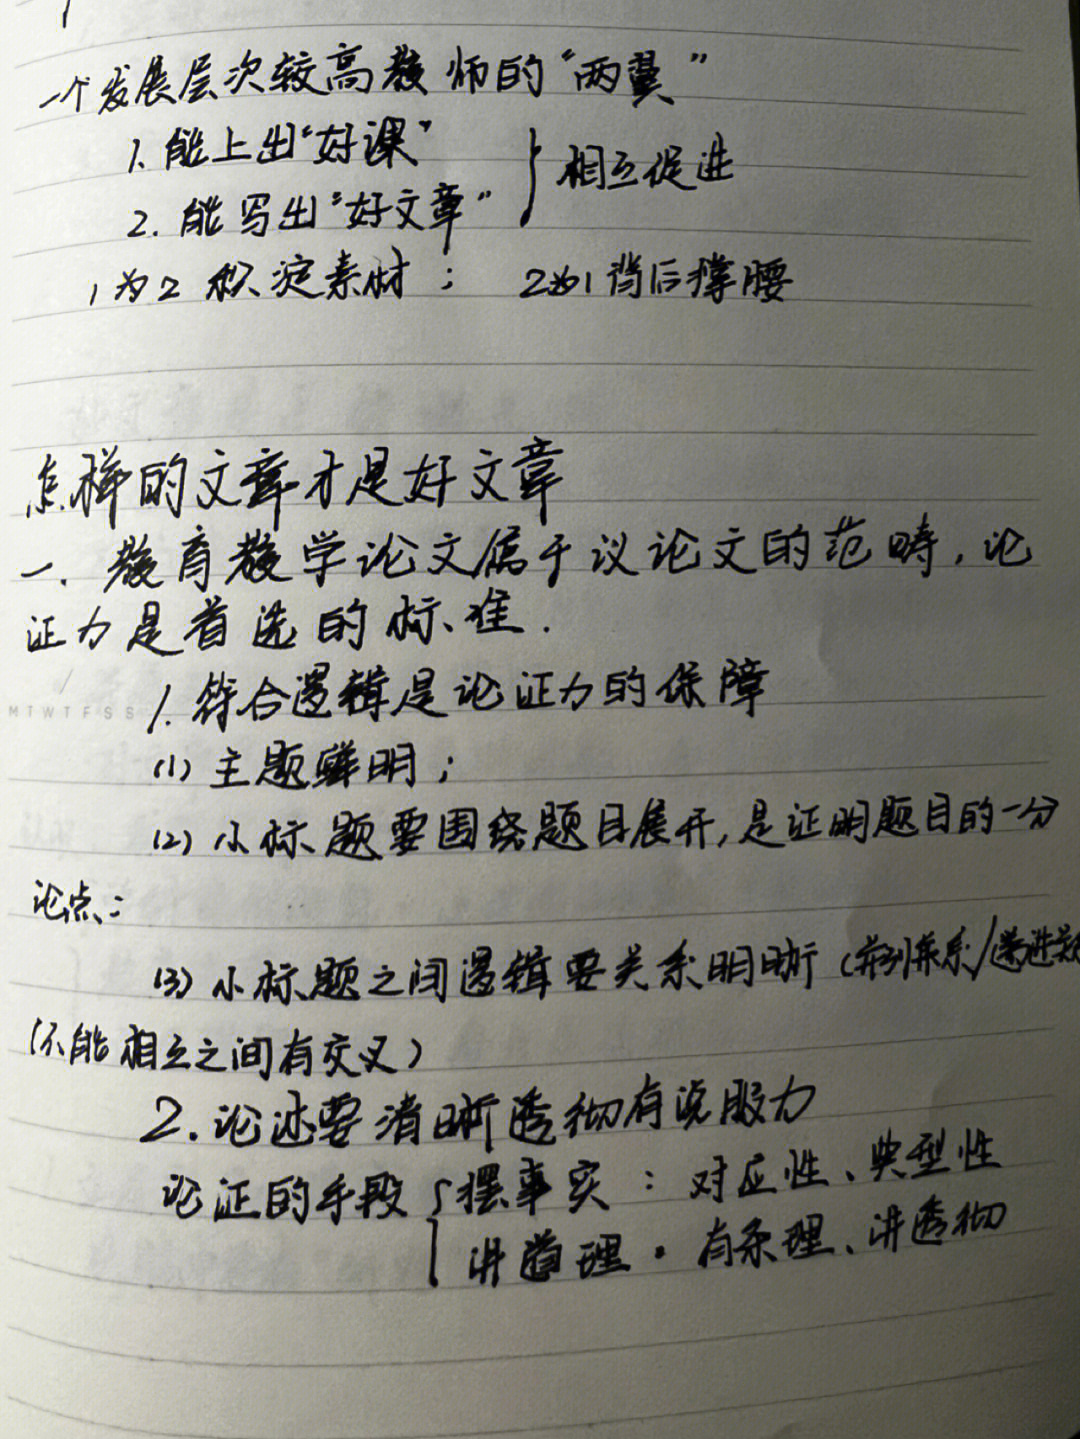 一个发展层次较高教师的“两翼”
1. 能上出“好课”
相互促进
2. 能写出“好文章”
1为2积淀素材; 2为1背后撑腰
怎样的文章才是好文章
一. 教育教学论文属于议论文的范畴,论
证力是首选的标准.
1. 符合逻辑是论证力的保障
MTWTFSS
(1) 主题鲜明;
(2) 小标题要围绕题目展开,是证明题目的一分
论点;
(3) 小标题之间逻辑要关系明晰(并列关系/递进关
(不能相互之间有交叉)
2. 论述要清晰透彻有说服力
论证的手段 { 摆事实: 对应性、典型性
讲道理. 有条理、讲透彻